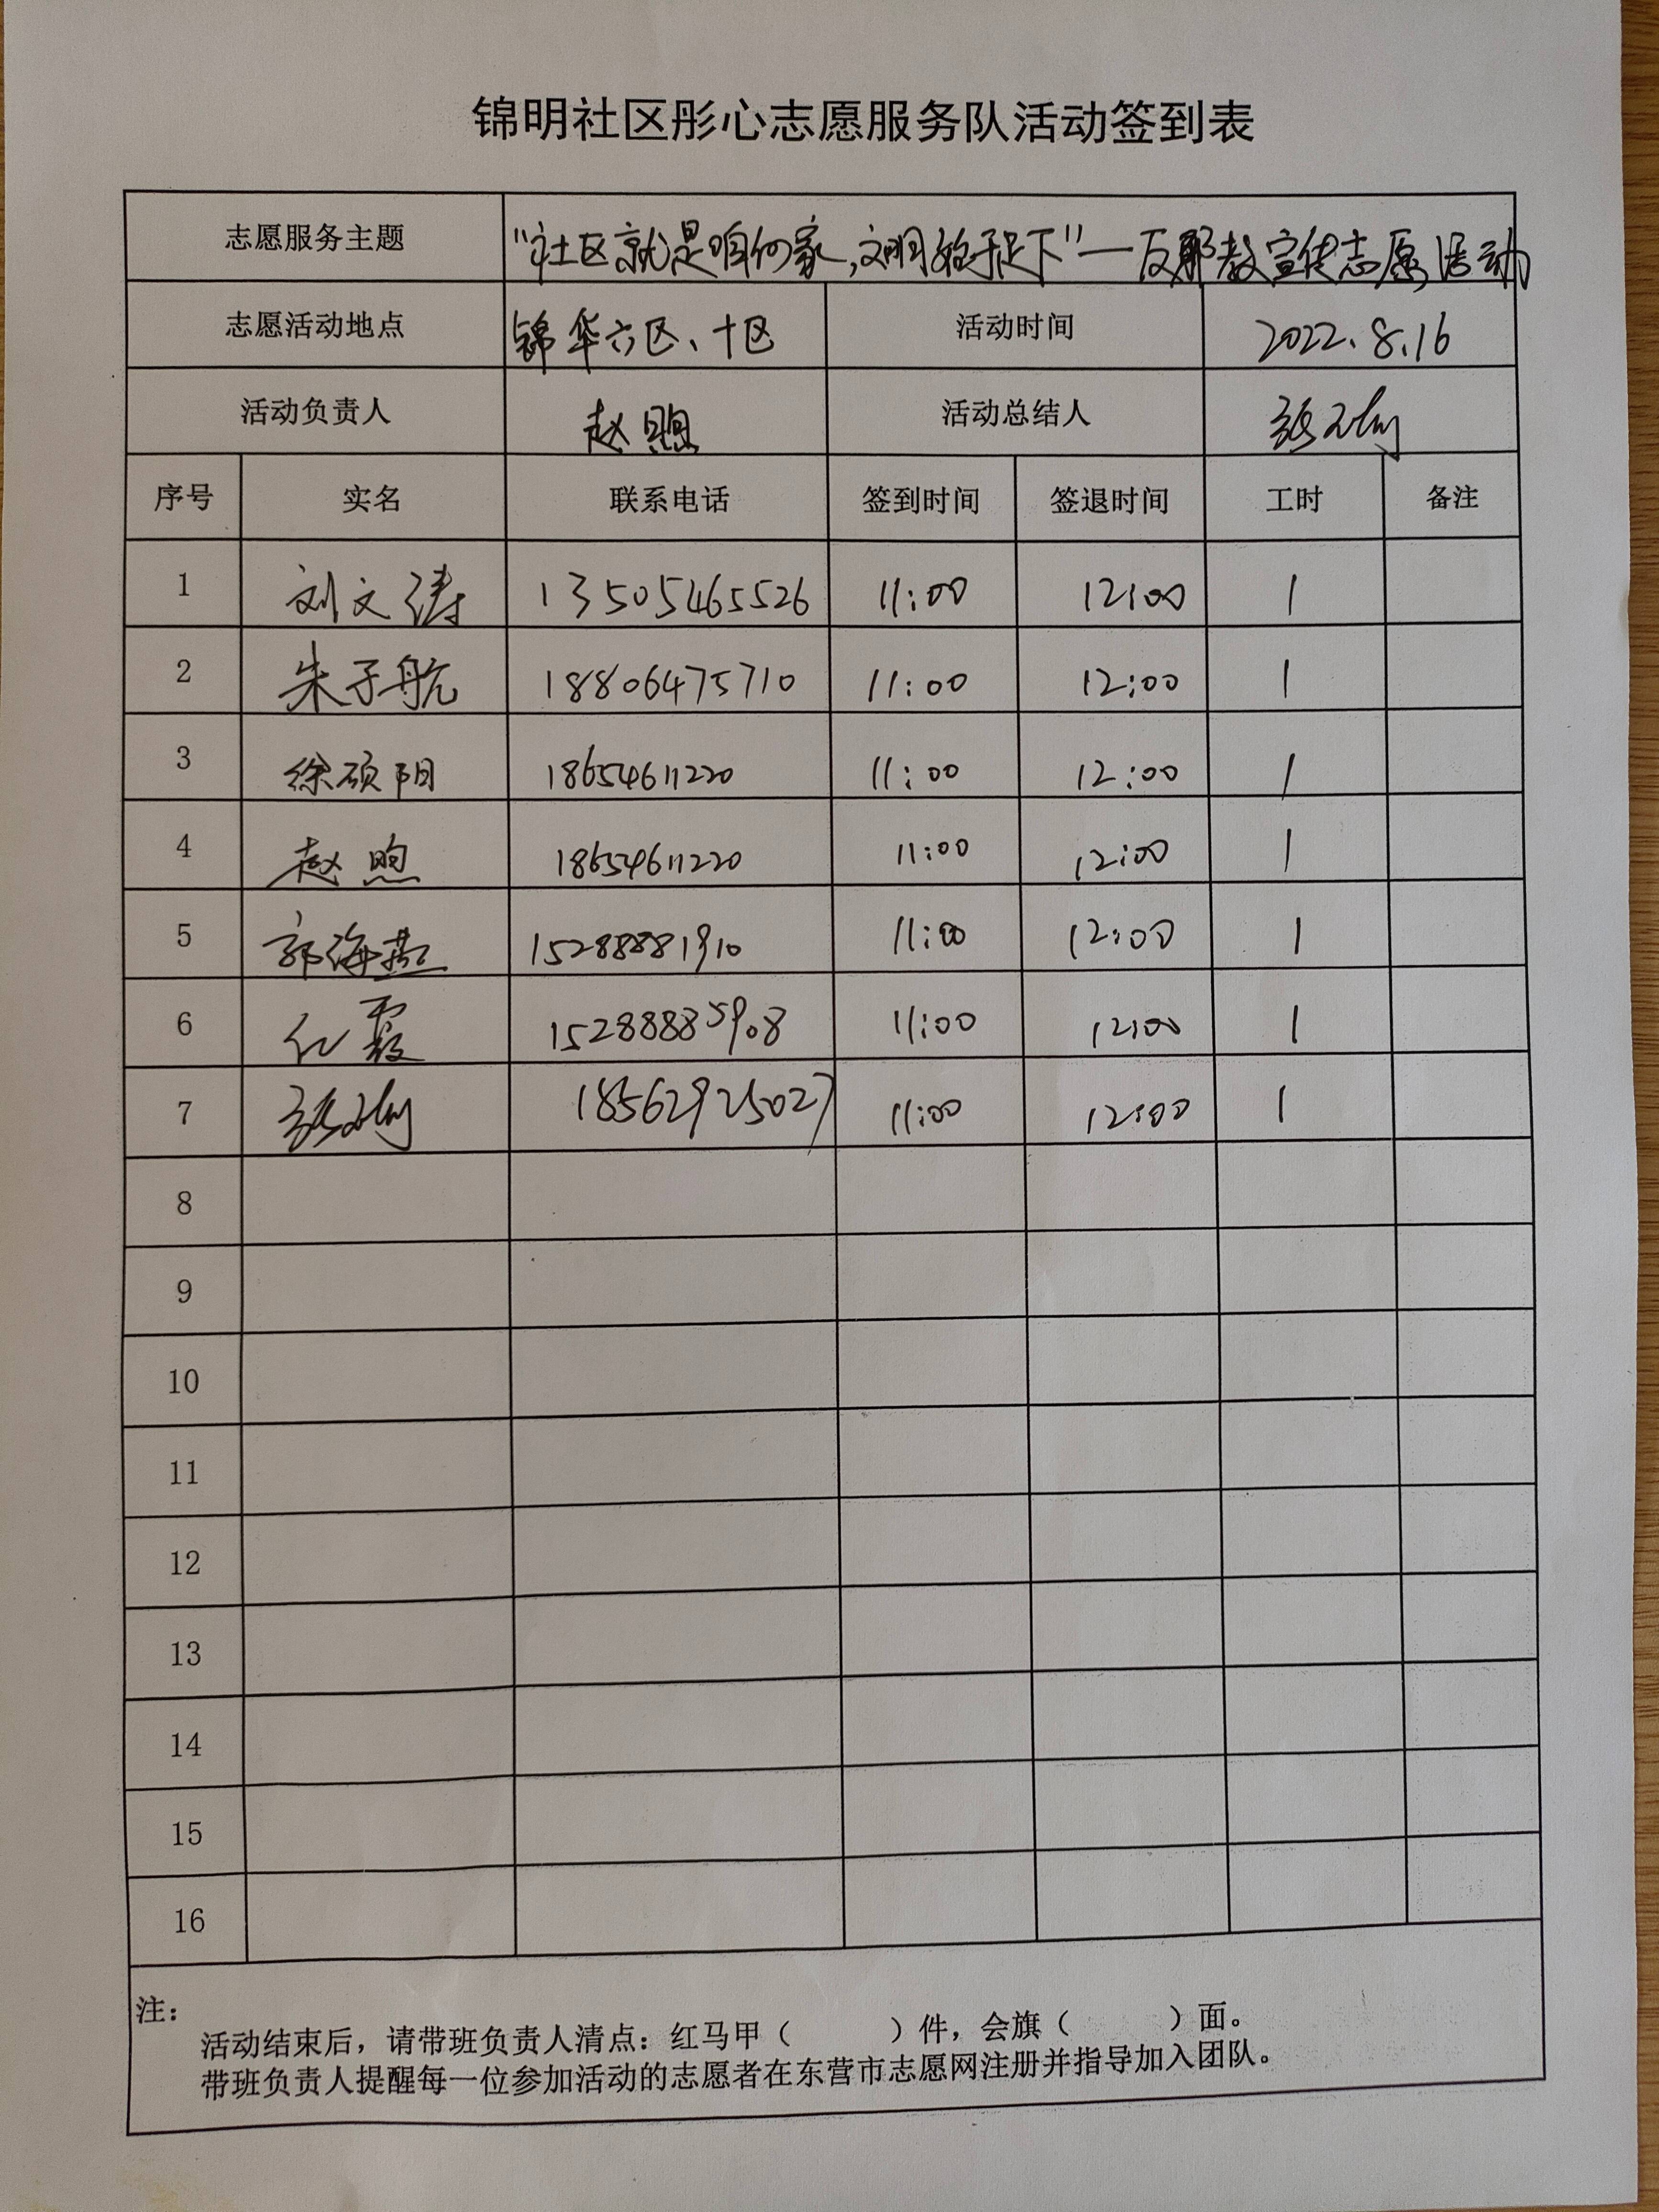 锦明社区彤心志愿服务队活动签到表
志愿服务主题 "社区就是咱们家,文明始于足下"—反邪教宣传志愿活动
志愿活动地点 锦华六区、十区 活动时间 2022.8.16
活动负责人 赵煦 活动总结人 张
序号 实名 联系电话 签到时间 签退时间 工时 备注
1 刘文涛 13505465526 11:00 12:00 1
2 朱子航 18806475710 11:00 12:00 1
3 徐硕阳 18654611220 11:00 12:00 1
4 赵煦 18654611220 11:00 12:00 1
5 郭海燕 15288881910 11:00 12:00 1
6 红霞 15288885908 11:00 12:00 1
7 张 18562925027 11:00 12:00 1
8
9
10
11
12
13
14
15
16
注:
活动结束后,请带班负责人清点:红马甲( )件,会旗( )面。
带班负责人提醒每一位参加活动的志愿者在东营市志愿网注册并指导加入团队。